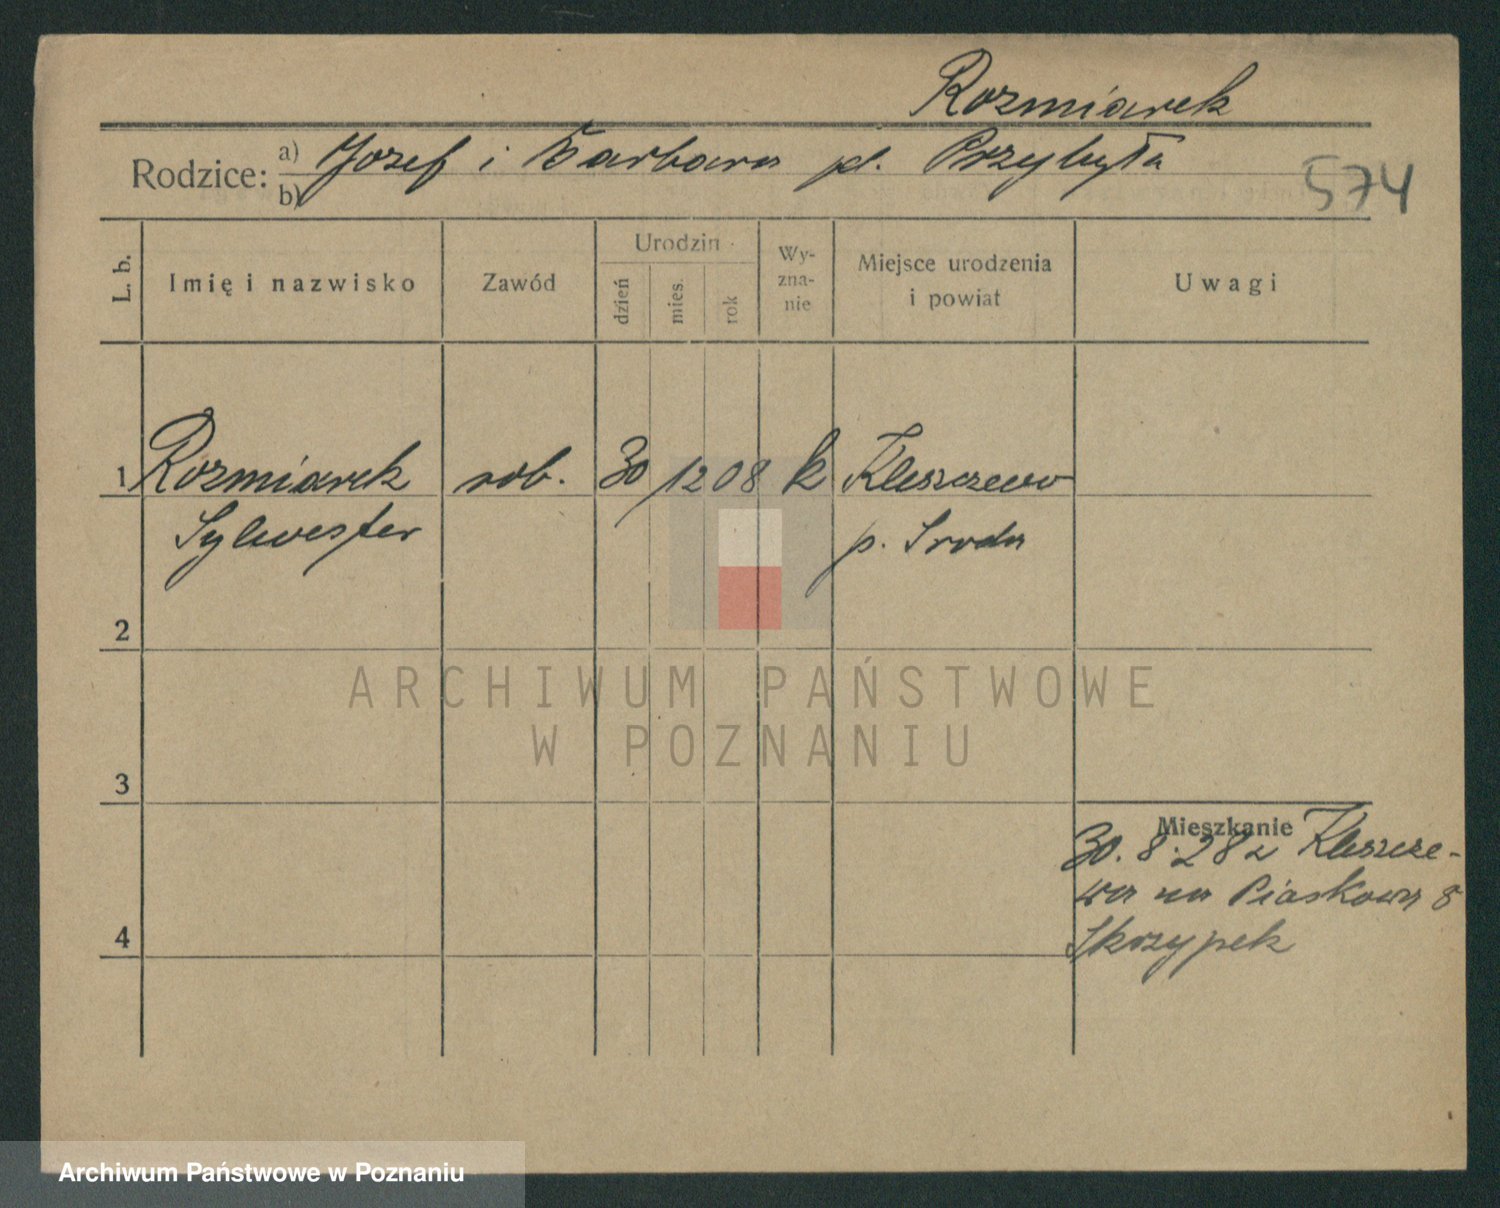 Rozmiarek
Rodzice: a) Jozef i Barbara pł. Przybyła
b)
574
L. b.
Imię i nazwisko
Zawód
Urodzin
dzień
mies.
rok
Wy-
zna-
nie
Miejsce urodzenia
i powiat
Uwagi
1 Rozmiarek rob. 30 12 08 k Kleszczewo
Sylwester p. Sroda
2
ARCHIWUM PAŃSTWOWE
W POZNANIU
3
Mieszkanie
30. 8. 28 z Kleszcze-
wa na Piaskowa 8
4
Skrzypek
Archiwum Państwowe w Poznaniu